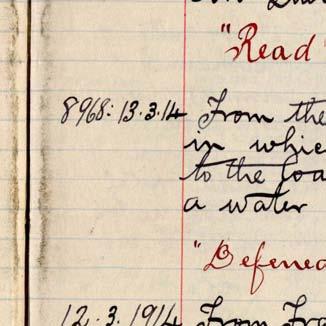 "Read
8968: 13.3.14 From the
in whic
to the loa
a water
"Defened
12.3.1914 From Fro